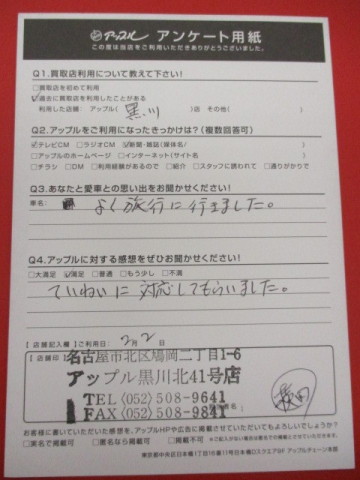 アップル アンケート用紙
この度は当店をご利用いただきありがとうございました。
Q1.買取店利用について教えて下さい!
□買取店を初めて利用
☑過去に買取店を利用したことがある
利用した店舗: アップル( 黒川 )店 その他( )
Q2.アップルをご利用になったきっかけは?(複数回答可)
☑テレビCM □ラジオCM ☑新聞・雑誌(媒体名/ )
□アップルのホームページ □インターネット(サイト名 )
□チラシ □DM □利用経験があるので □紹介 □スタッフに誘われて □通りがかりで
Q3.あなたと愛車との思い出をお聞かせください!
車名: よく旅行に行きました。
Q4.アップルに対する感想をぜひお聞かせください!
□大満足 ☑満足 □普通 □もう少し □不満
ていねいに対応してもらいました。
【店舗記入欄】ご利用日: 2月2日
【店舗印】
名古屋市北区鳩岡二丁目1-6
アップル黒川北41号店
TEL〈052〉508-9641
FAX〈052〉508-9841
お客様に書いていただいた感想を、アップルHPや広告に掲載させていただいてもよろしいでしょうか?
□実名で掲載可 □匿名なら掲載可 □掲載不可 ※ご記入がない場合は匿名での掲載とさせていただきます。
東京都中央区日本橋1丁目16番11号日本橋Dスクエア9F アップルチェーン本部